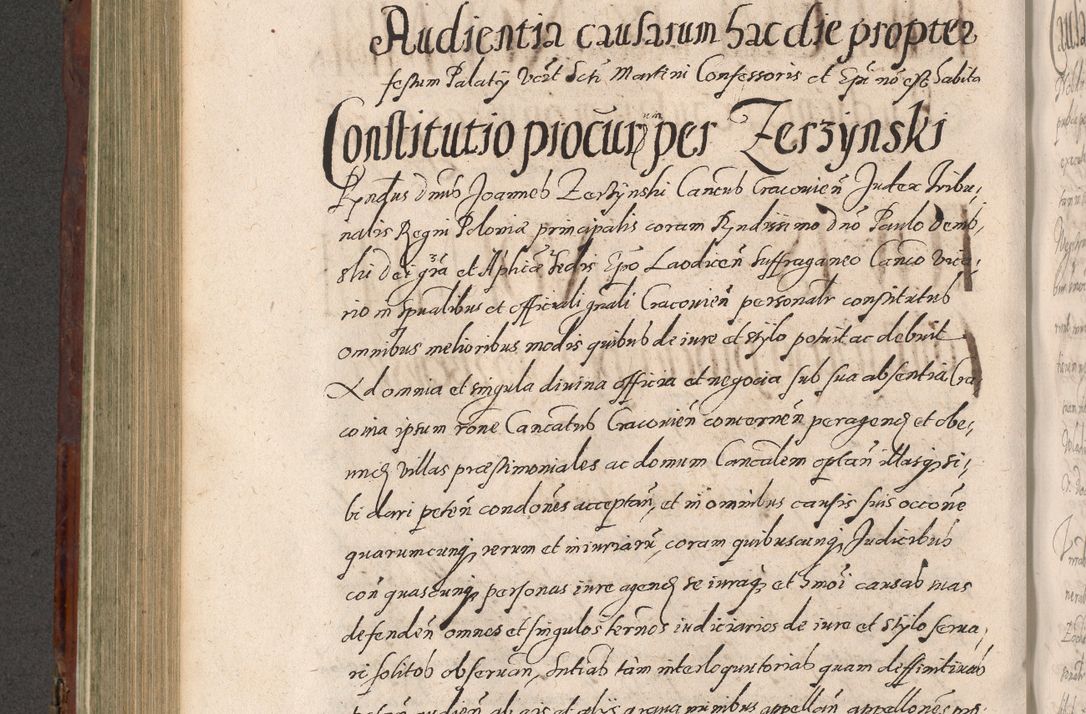 Audientia causarum hac die propter
festum Palatÿ Vert Scti Martini Confessoris et Epi nō est habita
Constitutio procur per Zerzynski
Rṇdus Dnūs Joannes Zerzÿnski Canćus Cracovień Judex Tribu,
nalis Regni Poloniæ principalis coram Rṇdissimo dno Paulo Demb,
ski dei gra et Aplicæ Sedis Epo Laodiceń Suffraganeo Canco vica,
rio in Spualibus et officiali gnali Cracovień personalr constitutus
omnibus melioribus modis quibus de iure et stylo potuit ac debuit
Ad omnia et singula divina officia et negocia sub sua absentia Cra,
covia ipsum rone Cancatus Cracovień concerneń peragenđ et obe,
unđ villas præstimoniales ac domum Cancalem optań illasq, si,
bi dari peteń condones acceptań, et in omnibus causis suis occone
quarumcunq, rerum et iniuriarū, coram quibuscunq, Judicibus
con quascunq, personas iure agenđ se iurag, et hmoi causas mas
defendeń omnes et singulos ternos iudiciarios de iure et stylo serva,
ri solitos observań, Sntias tam interloquutorias quam deffinitivas
audień appellań appellones